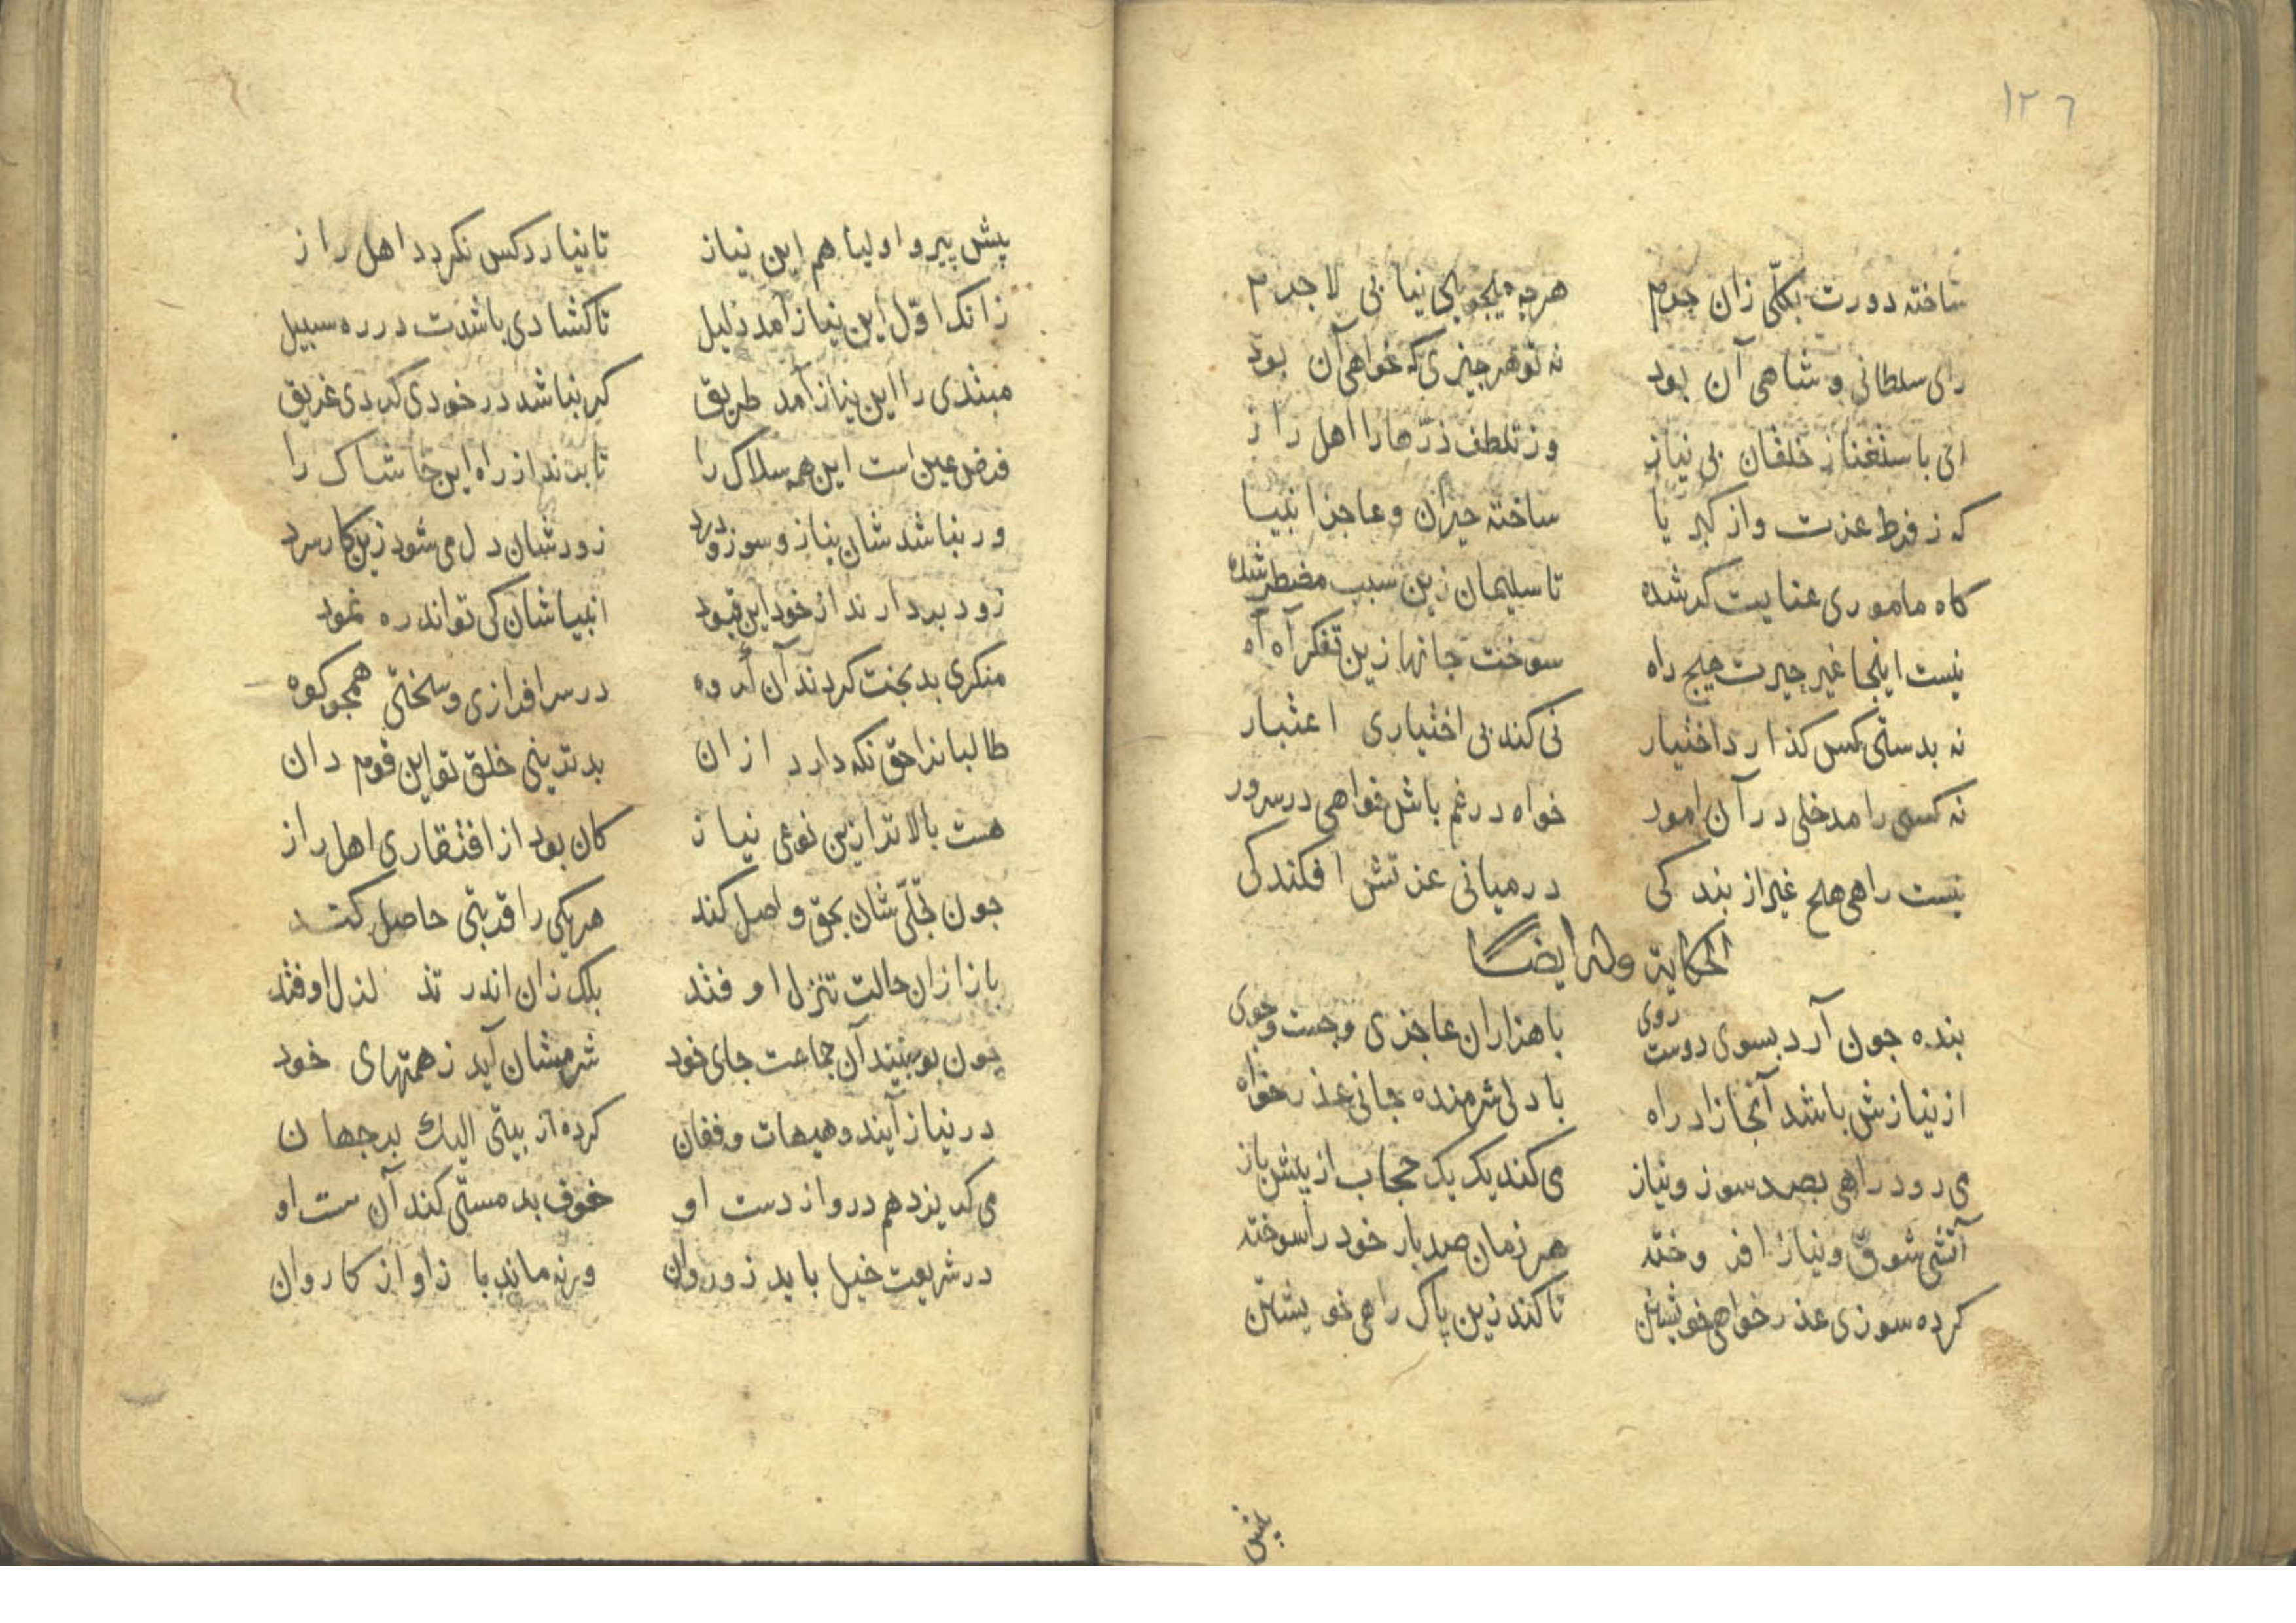 ١٢٦
ساخته دورت بکلّی زان جرم هرچه میجویی نیابی لاجرم
رای سلطانی و شاهی آن بود نه تو هر چیزی که خواهی آن بود
ای باستغنا ز خلقان بی نیاز وز تلطف ذرّها را اهل راز
که ز فرط عزت و از کبریا ساخته حیران و عاجز انبیا
کاه ماموری عنایت کر شده تا سلیمان زین سبب مضطر شده
نیست اینجا غیر حیرت هیچ راه سوخت جانها زین تفکر آه آه
نه بدستی کس کذارد اختیار نی کند بی اختیاری اعتبار
نه کسی را مدخلی در آن امور خواه در غم باش خواهی در سرور
نیست راهی هیچ غیر از بندکی در میانی عزتش افکندکی
الحکایة وله ایضا
بنده جون آرد بسوی دوست روی با هزاران عاجزی و جست وجوی
از نیازش باشد آنجا زاد راه با دلی شرمنده جانی عذر خواه
می رود راهی بصد سوز و نیاز می کند یک یک حجاب از پیش باز
آتشی شوق و نیاز افروخته هر زمان صد بار خود را سوخته
کرده سوزی عذر خواهی خویشتن تا کند زین پاک راهی خویشتن
پیش
پیش پیر و اولیا هم این نیاز تا نیارد کس نکردد اهل راز
زانک اوّل این نیاز آمد دلیل تا کشادی باشدت در ره سبیل
مبتدی را این نیاز آمد طریق کر نباشد در خودی کردی غریق
فرض عین است این همه سلاک را تا برندازراه این خاشاک را
ور نباشدشان نیاز و سوز و درد زود شان دل می شود زین کار سرد
زود بردارند از خود این قیود انبیاشان کی تواند ره نمود
منکری بدبخت کردند آن کروه در سرافرازی و سختی همجو کوه
طالبانرا حق نکه دارد ازان بدترینی خلق تو این قوم دان
هست بالاتر ازین نوعی نیاز کان بود از افتقاری اهل راز
جون تجلّی شان بحق واصل کند هر یکی را قربتی حاصل کند
باز ازان حالت تنزل اوفتد بلک زان اندر تذلزل اوفتد
جون بو بینند آن جماعت جای خود شرمشان آید ز همتهای خود
در نیاز آیند و هیهات و فغان کرده از بیتی الیک برجهان
می کریزد هم درو از دست او خوف بد مستی کند آن مست او
در شریعت خیل باید زو روان ورنه ماند با زاو از کاروان